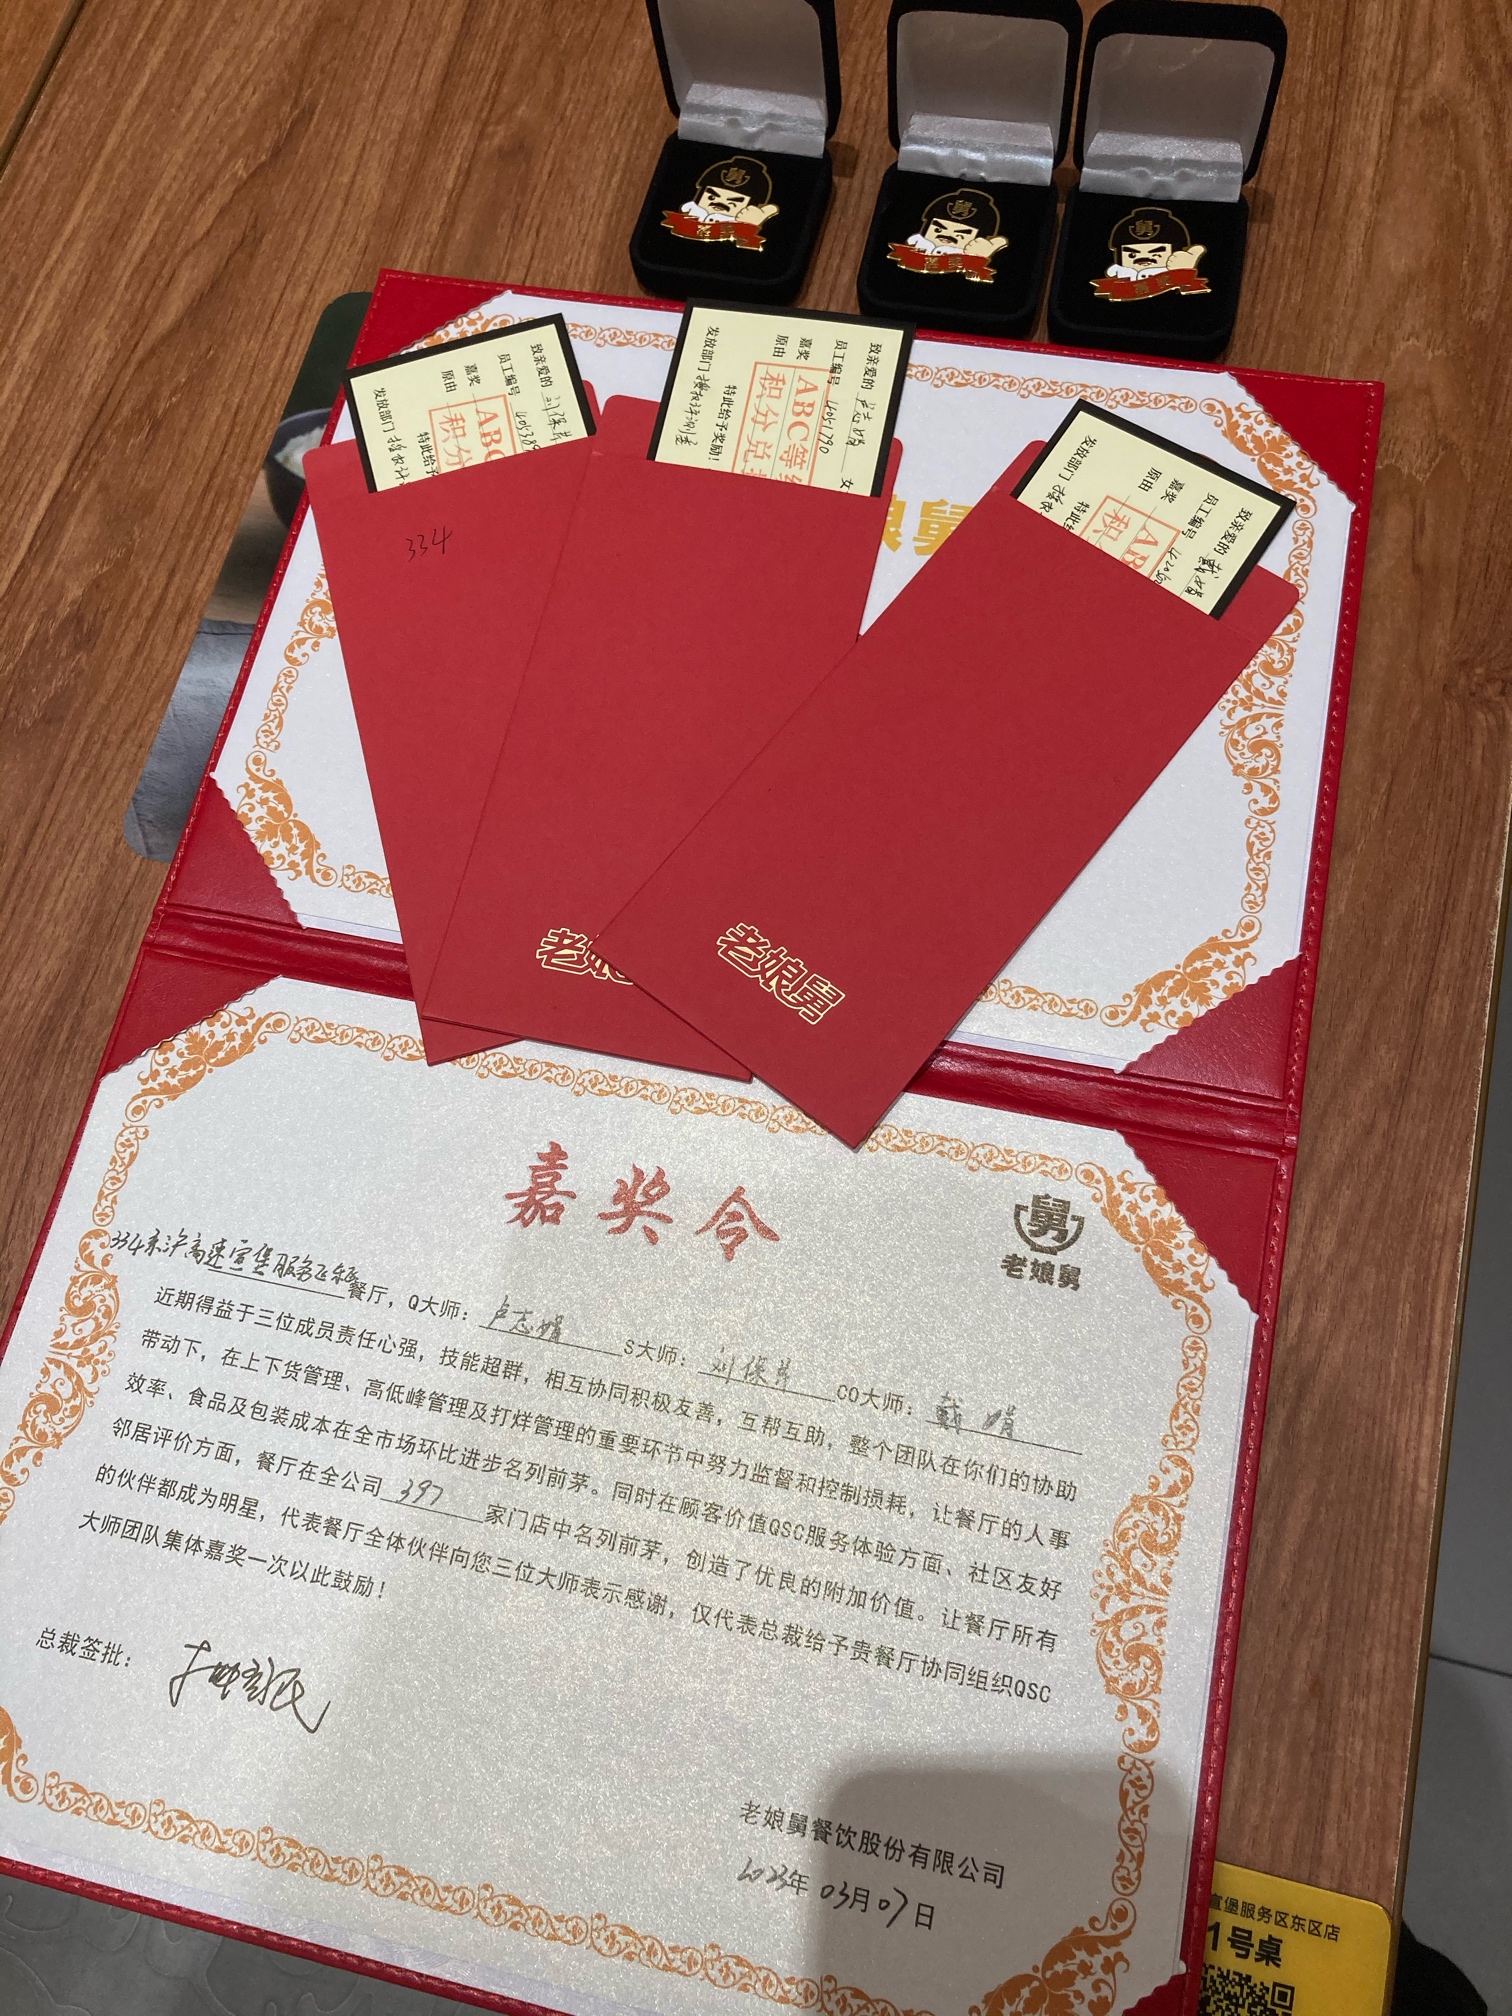 舅
舅
舅
嘉奖
致亲爱的 刘保芹
员工编号
嘉奖
原由
ABC
积分
特此给予
发放部门
致亲爱的 卢志娟 女
员工编号 1051790
嘉奖
原由
ABC等级
积分兑
特此给予奖励！
发放部门
致亲爱的 戴娟
员工编号
嘉奖
原由
AB
积
特此给
发放部门
334
娘舅
老娘
老娘舅
嘉奖令
舅
老娘舅
334京沪高速宣堡服务区东区餐厅，Q大师：卢志娟 S大师：刘保芹 CO大师：戴娟
近期得益于三位成员责任心强，技能超群，相互协同积极友善，互帮互助，整个团队在你们的协助
带动下，在上下货管理、高低峰管理及打烊管理的重要环节中努力监督和控制损耗，让餐厅的人事
效率、食品及包装成本在全市场环比进步名列前茅。同时在顾客价值QSC服务体验方面、社区友好
邻居评价方面，餐厅在全公司397家门店中名列前茅，创造了优良的附加价值。让餐厅所有
的伙伴都成为明星，代表餐厅全体伙伴向您三位大师表示感谢，仅代表总裁给予贵餐厅协同组织QSC
大师团队集体嘉奖一次以此鼓励！
总裁签批：
老娘舅餐饮股份有限公司
2023年03月07日
宣堡服务区东区店
1号桌